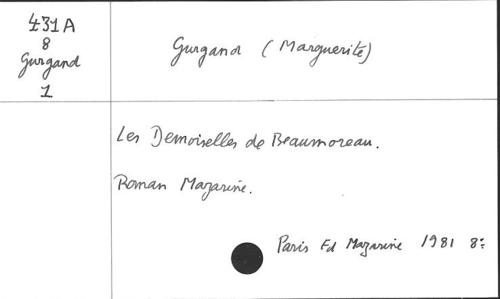 431A
8
Gurgand
1
Gurgand (Marguerite)
Les Demoiselles de Beaumoreau.
Roman Mazarine.
Paris Ed Mazarine 1981 8°